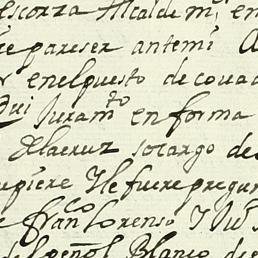 escorza Alcalde mr, en
re pareser antemi A
r enelpuesto de covad
Dui Juramto en forma
delacruz socargo de
upiere Yle fuere pregun
e franco lorenso Y Jus
del peñol Blanco